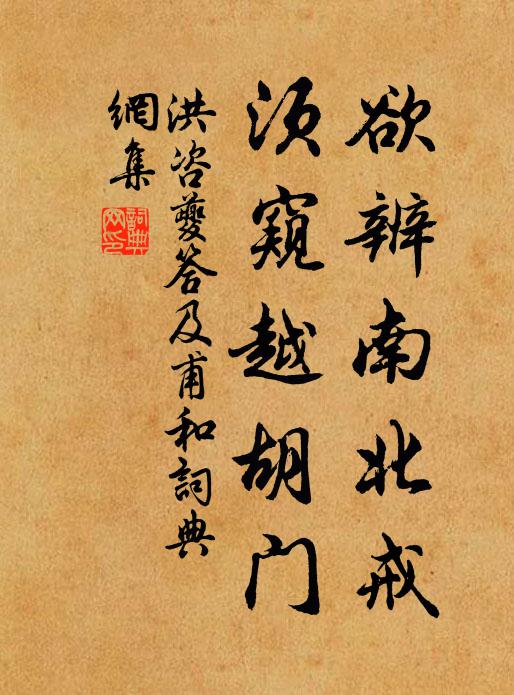 欲辨南北戒
须窥越胡门
洪咨夔答及甫和詞典
網集
詞典網印